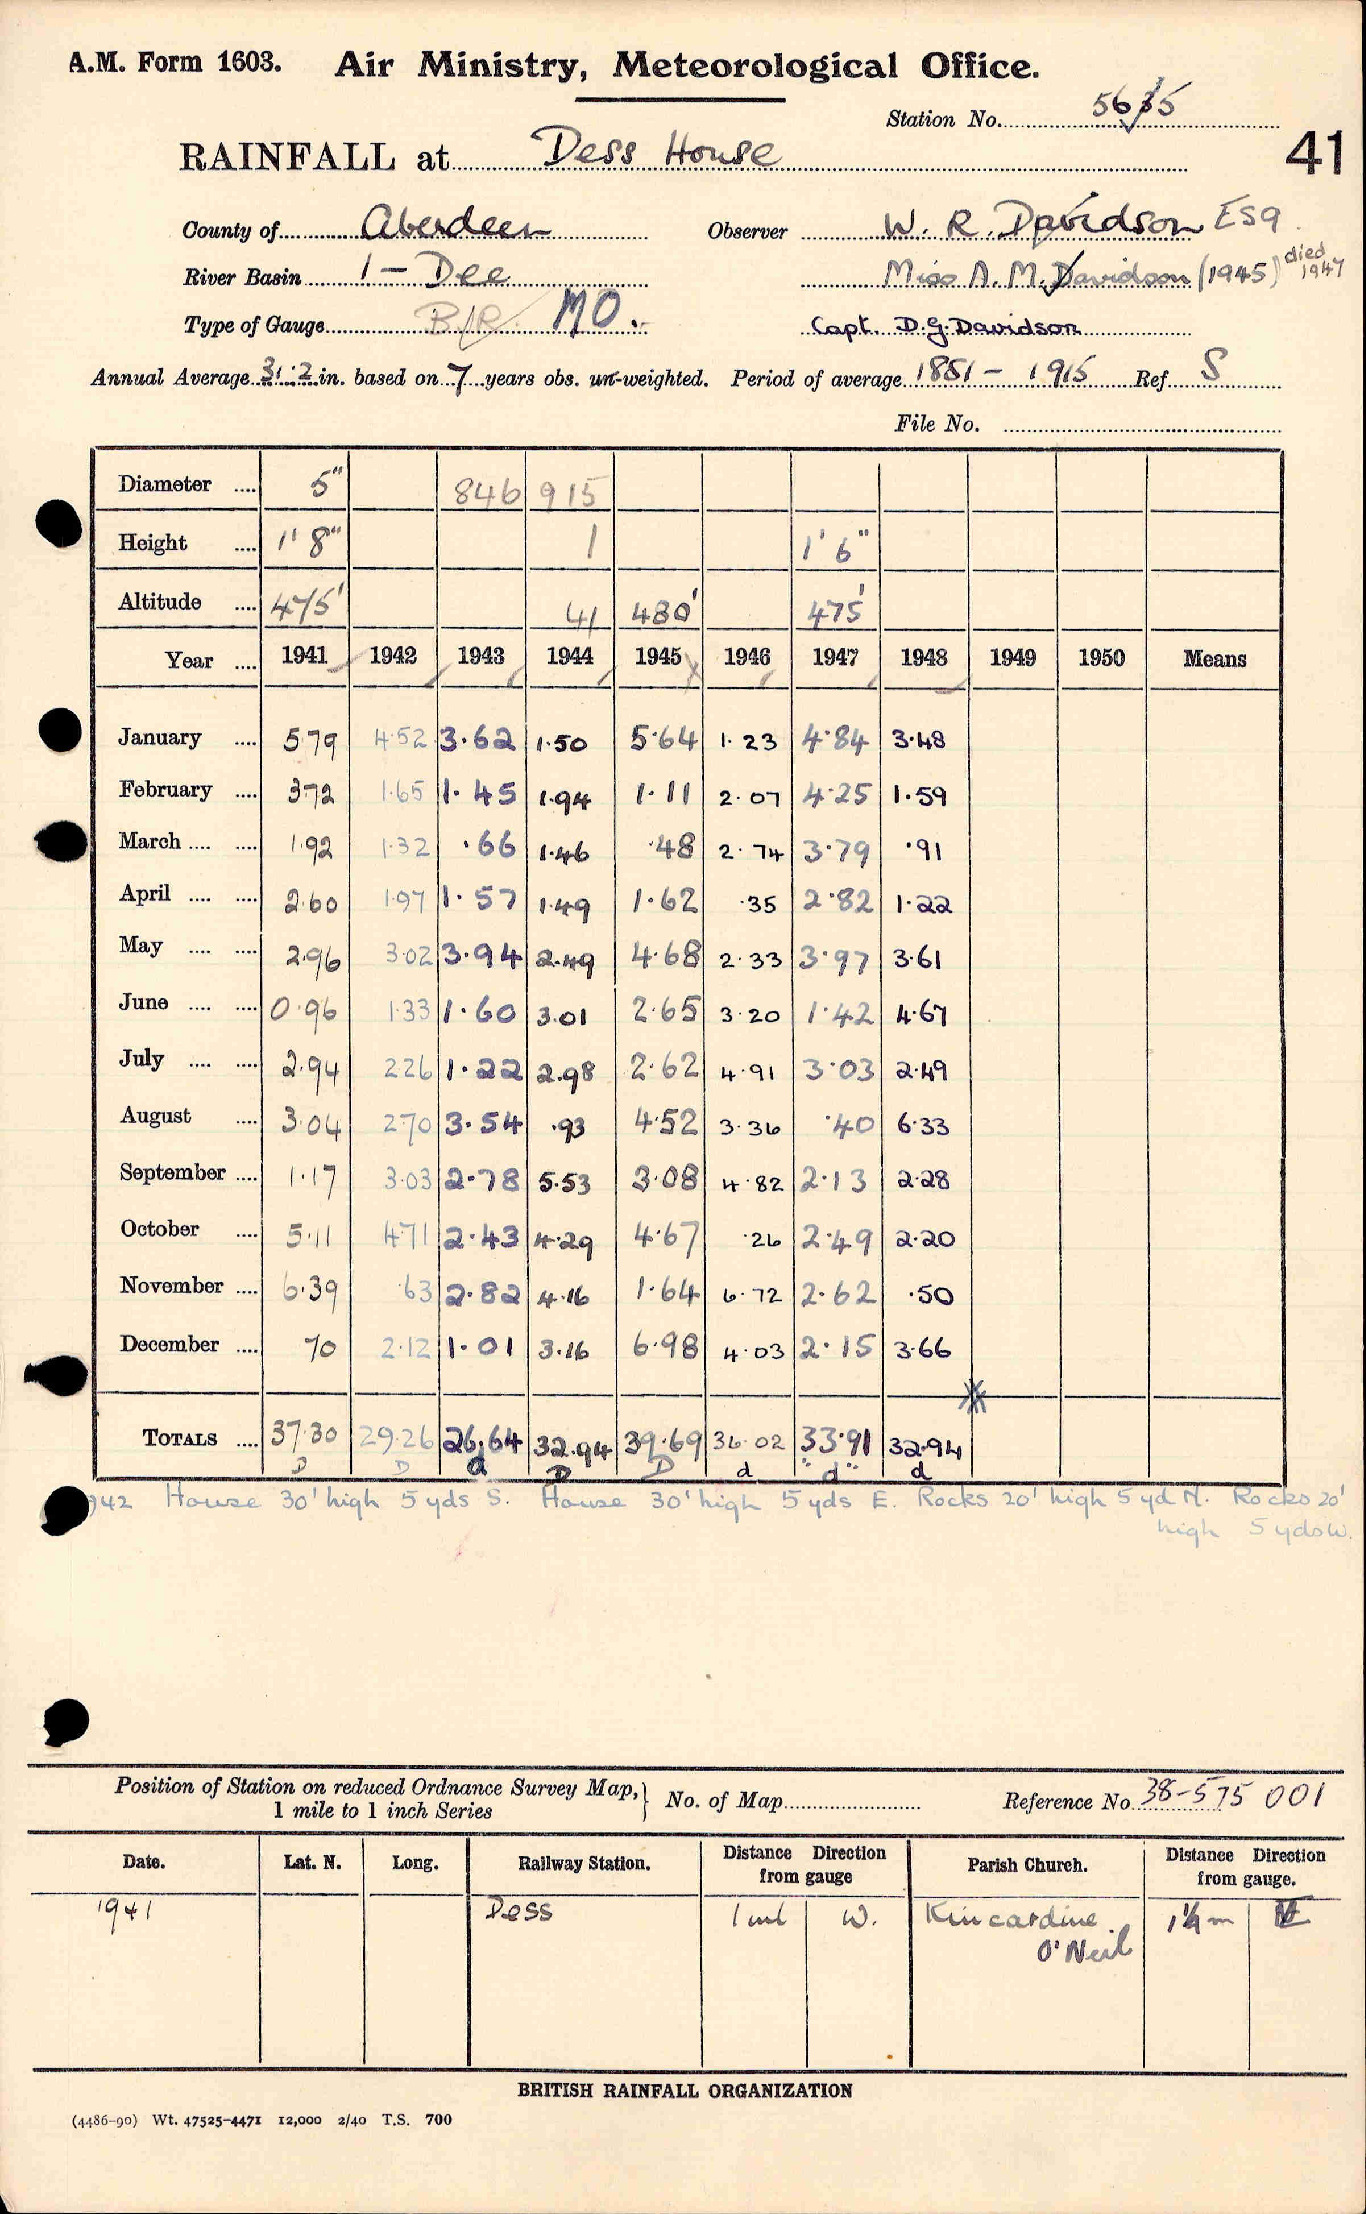 A.M. Form 1603. Air Ministry, Meteorological Office.
Station No. 5635
41
RAINFALL at Dess House
County of Aberdeen Observer W. R. Davidson ESq
River Basin 1 - Dee Miss A. M. Davidson (1945) died 1947
Type of Gauge B/R MO. Capt. D.G. Davidson
Annual Average 31.2 in. based on 7 years obs. un-weighted. Period of average 1881 - 1915 Ref S
File No.
Diameter .... 5" 846 915
Height .... 1' 8" 1 1' 6"
Altitude .... 475' 41 480' 475'
Year .... 1941 1942 1943 1944 1945 1946 1947 1948 1949 1950 Means
January .... 5.79 4.52 3.62 1.50 5.64 1.23 4.84 3.48
February .... 3.72 1.65 1.45 1.94 1.11 2.07 4.25 1.59
March .... .... 1.92 1.32 .66 1.46 .48 2.74 3.79 .91
April .... .... 2.60 1.97 1.57 1.49 1.62 .35 2.82 1.22
May .... .... 2.96 3.02 3.94 2.49 4.68 2.33 3.97 3.61
June .... .... 0.96 1.33 1.60 3.01 2.65 3.20 1.42 4.67
July .... .... 2.94 2.26 1.22 2.98 2.62 4.91 3.03 2.49
August .... 3.04 2.70 3.54 .93 4.52 3.36 .40 6.33
September .... 1.17 3.03 2.78 5.53 3.08 4.82 2.13 2.28
October .... 5.11 4.71 2.43 4.29 4.67 .26 2.49 2.20
November .... 6.39 .63 2.82 4.16 1.64 6.72 2.62 .50
December .... 70 2.12 1.01 3.16 6.98 4.03 2.15 3.66
TOTALS .... 37.30 29.26 26.64 32.94 39.69 36.02 33.91 32.94
D D a D D d "d" d
942 House 30' high 5 yds S. House 30' high 5 yds E. Rocks 20' high 5 yd N. Rocks 20'
high 5 yds W.
Position of Station on reduced Ordnance Survey Map, 1 mile to 1 inch Series } No. of Map Reference No 38-575 001
Date. Lat. N. Long. Railway Station. Distance Direction from gauge Parish Church. Distance Direction from gauge.
1941 Dess 1 ml W. Kincardine 1¼ m
O'Neil
BRITISH RAINFALL ORGANIZATION
(4486-90) Wt. 47525-4471 12,000 2/40 T.S. 700